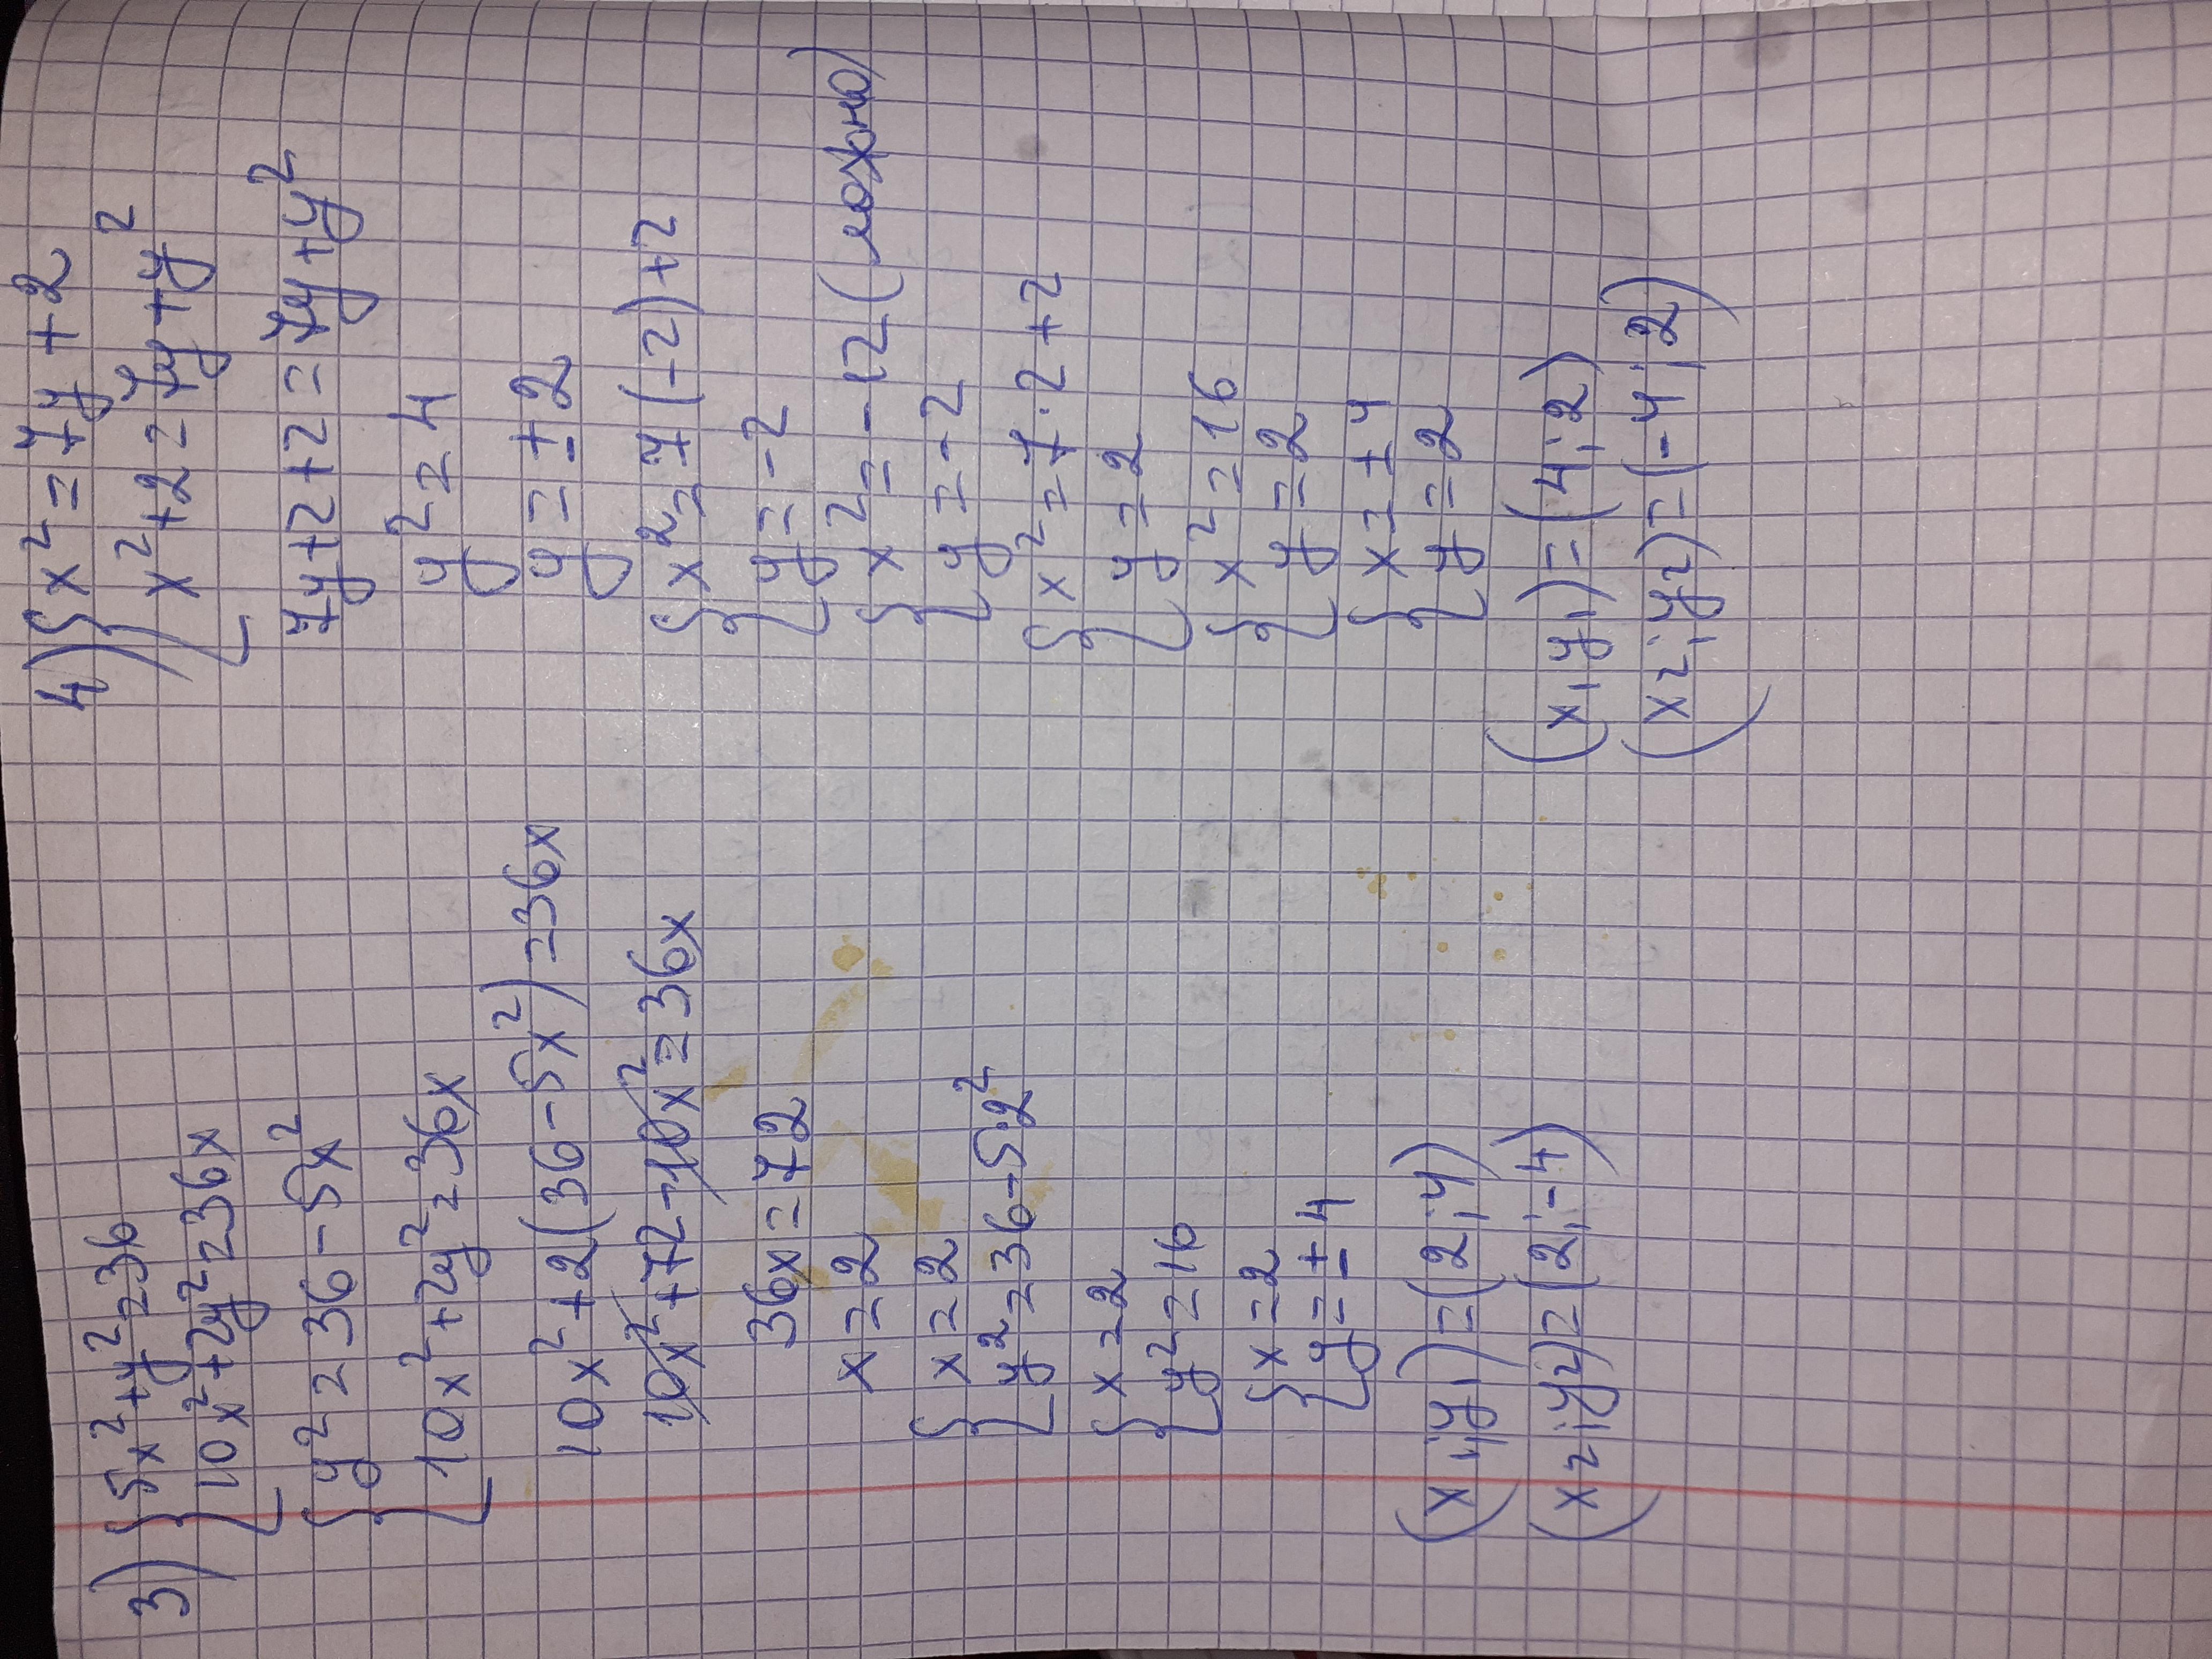 3) { 5x² + y² = 36
10x² + 2y² = 36x
{ y² = 36 - 5x²
10x² + 2y² = 36x
10x² + 2(36 - 5x²) = 36x
10x² + 72 - 10x² = 36x
36x = 72
x = 2
{ x = 2
y² = 36 - 5·2²
{ x = 2
y² = 16
{ x = 2
y = ± 4
(x₁; y₁) = (2; 4)
(x₂; y₂) = (2; -4)
4) { x² = 7y + 2
x² + 2 = 7y + y²
7y + 2 + 2 = 7y + y²
y² = 4
y = ± 2
{ x² = 7(-2) + 2
y = -2
{ x² = -12 (ложно)
y = -2
{ x² = 7·2 + 2
y = 2
{ x² = 16
y = 2
{ x = ± 4
y = 2
(x₁ y₁) = (4; 2)
(x₂; y₂) = (-4; 2)